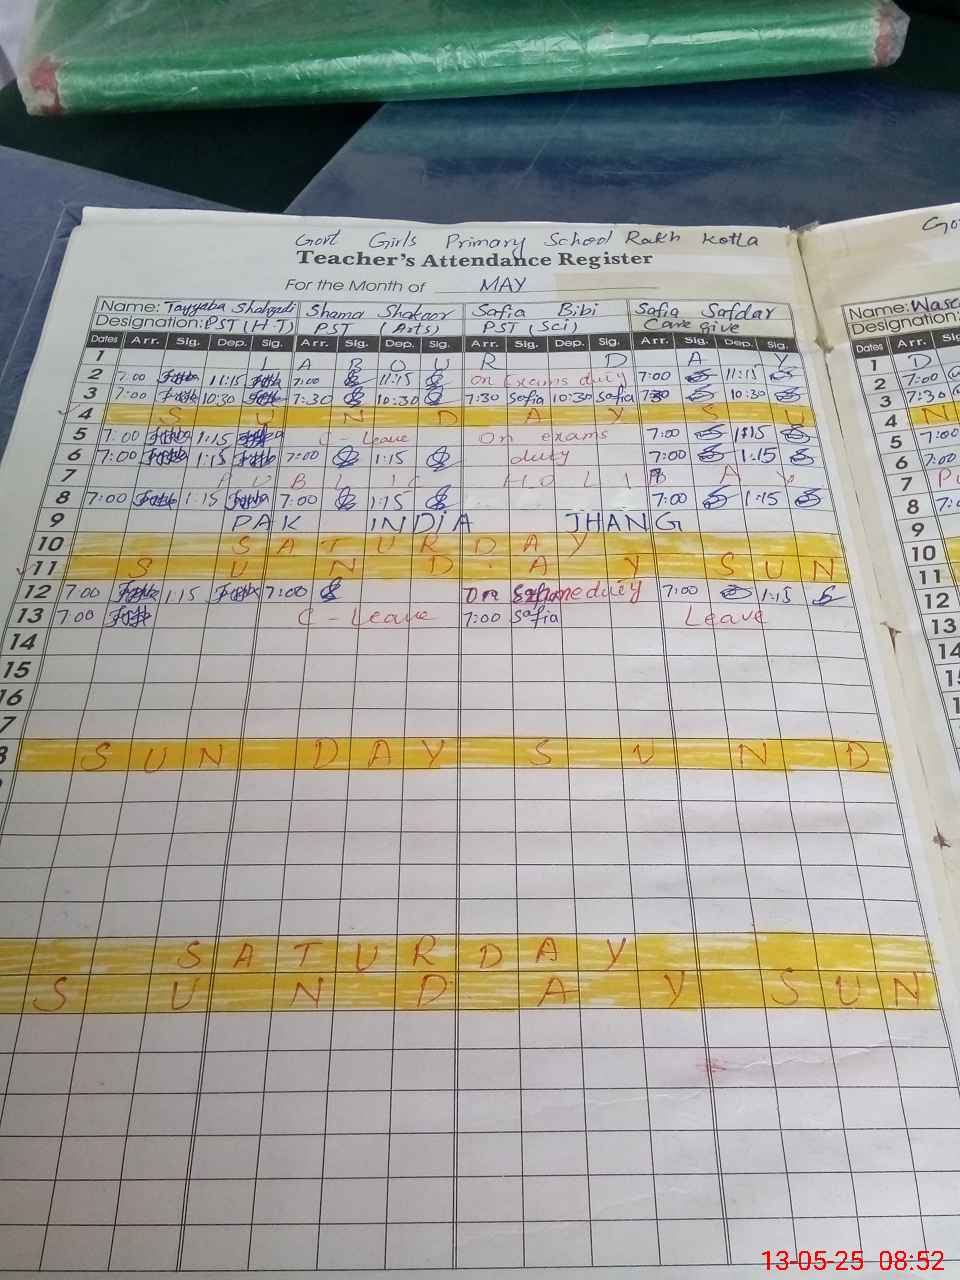 Govt Girls Primary School Rakh Kotla
Teacher's Attendance Register
For the Month of MAY
Name: Tayyaba Shahzadi Shama Shakoor Safia Bibi Safia Safdar
Designation: PST (H.T) PST (Arts) PST (Sci) Care give
Dates Arr. Sig. Dep. Sig. Arr. Sig. Dep. Sig. Arr. Sig. Dep. Sig. Arr. Sig. Dep. Sig.
1 L A B O U R D A Y
2 7:00 11:15 7:00 11:15 On Exams duty 7:00 11:15
3 7:00 10:30 7:30 10:30 7:30 Safia 10:30 Safia 10:30
4 S U N D A Y S U
5 7:00 1:15 C - Leave On exams 7:00 1:15
6 7:00 1:15 7:00 1:15 duty 7:00 1:15
7 P U B L I C H O L I D A Y
8 7:00 1:15 7:00 1:15 7:00 1:15
9 PAK INDIA JHANG
10 S A T U R D A Y
11 S U N D A Y S U N
12 7:00 1:15 7:00 On duty 7:00 1:15
13 7:00 C - Leave 7:00 Safia Leave
14
15
16
7
8 S U N D A Y S U N D
S A T U R D A Y
S U N D A Y S U N
Name:
Designation:
Dates Arr. Sig.
1 D
2 7:00
3 7:30
4 N
5 7:00
6 7:00
7
8
9
10
11
12
13
14
13-05-25 08:52